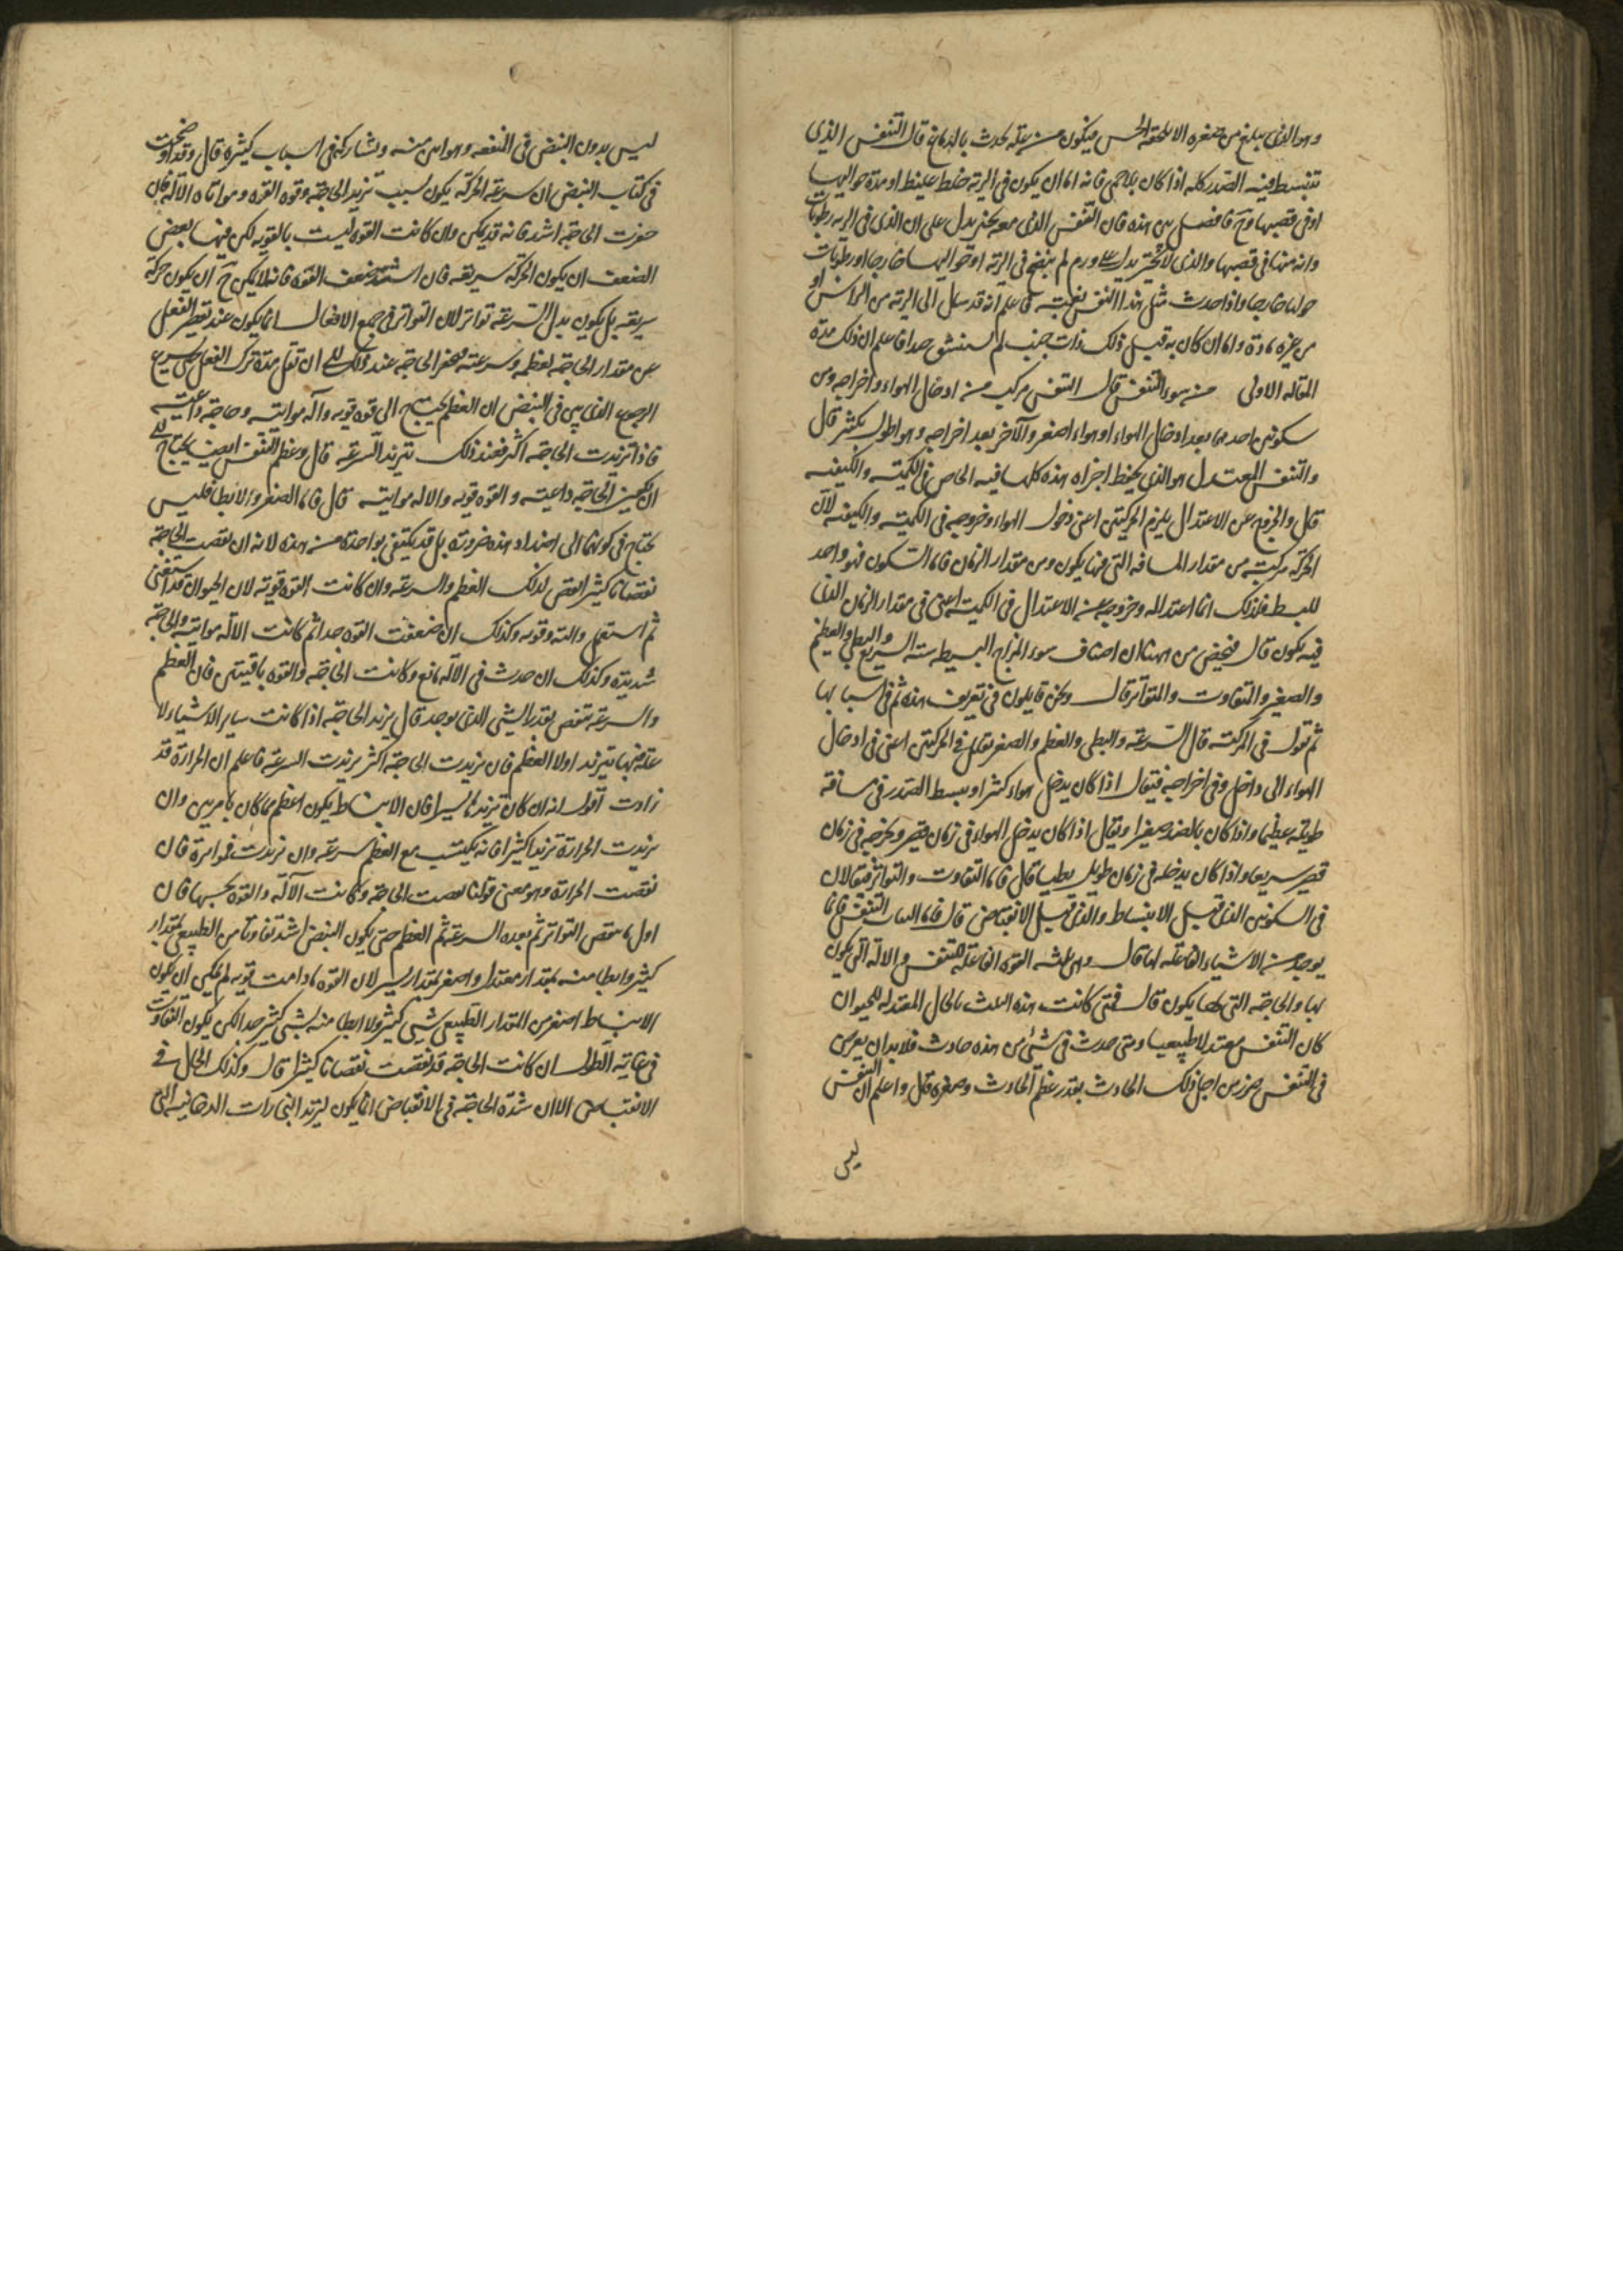 وهو الذى يبلغ من صغره الا يلحقه الحس فيكون من علة تحدث بالدماغ قال التنفس الذى
ينبسط فيه الصدر كله اذا كان بلا حمى فانه اما ان يكون فى الرية خلط غليظ او مدة حواليها
او فى قصبها وح فافصل بين هذه فان التنفس الذى معه يدل على ان الذى فى الرية رطوبات
وانه منها فى قصبها والذى لا يدل على ورم لم ينضج فى الرية او حواليها خارجا او رطوبات
حولها خارجا واذا حدث مثل هذا النفس بغتة فاعلم انه قد سال الى الرية من الراس او
من غيره مادة واما ان كان به قبل ذلك ذات جنب لم يستنشق جدا فاعلم ان ذلك مدة
المقالة الاولى من سوء التنفس قال التنفس مركب من ادخال الهواء واخراجه ومن
سكونين احدهما بعد ادخال الهواء وهو اصغر والآخر بعد اخراجه وهو اطول بكثير قال
والتنفس المعتدل هو الذى يحفظ اجزاه هذه كلها فيه الخاص فى الكمية والكيفية
قال والخروج عن الاعتدال يلزم الحركتين اعنى دخول الهواء وخروجه فى الكمية والكيفية لان
الحركة مركبة من مقدار المسافة التى فيها يكون ومن مقدار الزمان فاما السكون فهو واحد
بسيط فلذلك انما اعتداله وخروجه عن الاعتدال فى الكمية اعنى فى مقدار الزمان الذى
فيه يكون قال من اصناف سوء المزاج البسيطة ستة السريع والبطى والعظيم
والصغير والمتفاوت والمتواتر قال ونحن قايلون فى تعريف هذه ثم فى اسبابها
ثم نقول فى المركبة قال السرعة والبطى والعظم والصغر يقال فى الحركتين اعنى فى ادخال
الهواء الى داخل وفى اخراجه فيقال اذا كان يدخل هواء كثيرا ويبسط الصدر فى مسافة
طويلة عظيما واذا كان بالضد صغيرا ويقال اذا كان يدخل الهواء فى زمان قصير ويخرجه فى زمان
قصير سريعا واذا كان يدخله فى زمان طويل بطيا قال فاما التفاوت والتواتر فيقالان
فى السكونين الذى قبل الانبساط والذى قبل الانقباض قال فاما اسباب التنفس فانما
يوجد من الاشياء الفاعلة لها قال وهى ثلثة القوة الفاعلة للتنفس والالة التى يكون
بها والحاجة التى لها يكون قال فمتى كانت هذه الثلث بالحال المعتدلة للحيوان
كان التنفس معتدلا طبيعيا ومتى حدث فى شئ من هذه حادث فلا بد ان يعرض
فى التنفس ضرر من اجل ذلك الحادث بقدر عظم الحادث وصغره قال واعلم ان التنفس
ليس
ليس بدون النبض فى المنفعة وهو ابين منه ويشاركه فى اسباب كثيرة قال وقد اوضحت
فى كتاب النبض ان سرعة الحركة يكون لسبب تزيد الحاجة وقوة القوة ومواتاه الآلة فان
حفزت الحاجة اشد فانه قد يمكن وان كانت القوة ليست بالقوية لكن فيها بعض
الضعف ان يكون الحركة سريعة فان اشتد ضعف القوة فانه لا يمكن ح ان يكون حركة
سريعة بل يكون بدل السرعة تواتر لان التواتر فى جميع الافعال انما يكون عند تقصير الفعل
عن مقدار الحاجة لعظمه وسرعته فيحفز الحاجة عند ذلك الى ان تقل مدة ترك الفعل حتى يسرع
الرجوع الذى بين فى النبض ان العظم يحتاج الى قوة قوية وآلة مواتية وحاجة داعية
فاذا تزيدت الحاجة اكثر فعند ذلك تتزيد السرعة قال وعظم التنفس ايضا يحتاج الى
ان يكون الحاجة داعية والقوة قوية والالة مواتية قال فاما الصغر والابطا فليس
يحتاج فى كونها الى اضداد هذه ضرورة بل قد يكتفى بواحدة من هذه لانه ان نقصت الحاجة
نقصانا كثيرا نقص لذلك العظم والسرعة وان كانت القوة قوية لان الحيوان قد استغنى
ثم استعمل والته وقوته وكذلك ان ضعفت القوة جدا ثم كانت الالة مواتية والحاجة
شديدة وكذلك ان حدث فى الآلة مانع وكانت الحاجة والقوة باقيتين فان العظم
والسرعة تنقص بقدر الشى الذى يوجد قال تزيد الحاجة اذا كانت ساير الاشياء لا
علة بها يتزيد اولا العظم فان تزيدت الحاجة اكثر تزيدت السرعة فاعلم ان الحرارة قد
زادت اقول انه ان كان تزيدا يسيرا فان الانبساط يكون اعظم مما كان بامر بين وان
تزيدت الحرارة تزيدا كثيرا فانه يكتسب مع العظم سرعة وان تزيدت فواترة فان
نقصت الحرارة وهو معنى قولنا نقصت الحاجة وكانت الآلة والقوة بحسبها فان
اول ما ينقص التواتر ثم بعده السرعة ثم العظم حتى يكون النبض اشد تفاوتا من الطبيعى بمقدار
كثير وابطا منه بمقدار معتدل واصغر بمقدار يسير لان القوة ما دامت قوية لم يمكن ان يكون
الانبساط اصغر من المقدار الطبيعى بشى كثير ولا ابطا منه بشى كثير جدا لكن يكون التفاوت
فى غاية الطول ان كانت الحاجة قد نقصت نقصانا كثيرا قال وكذلك الحال فى
الانقباض الا ان شدة الحاجة فى الانقباض انما يكون لتزيد البخارات الدخانية التى